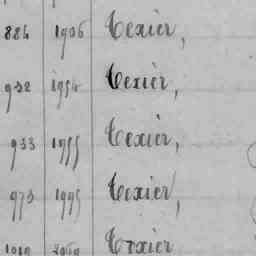 884 1906 Texier,
932 1954 Texier,
933 1955 Texier,
973 1995 Texier,
Texier